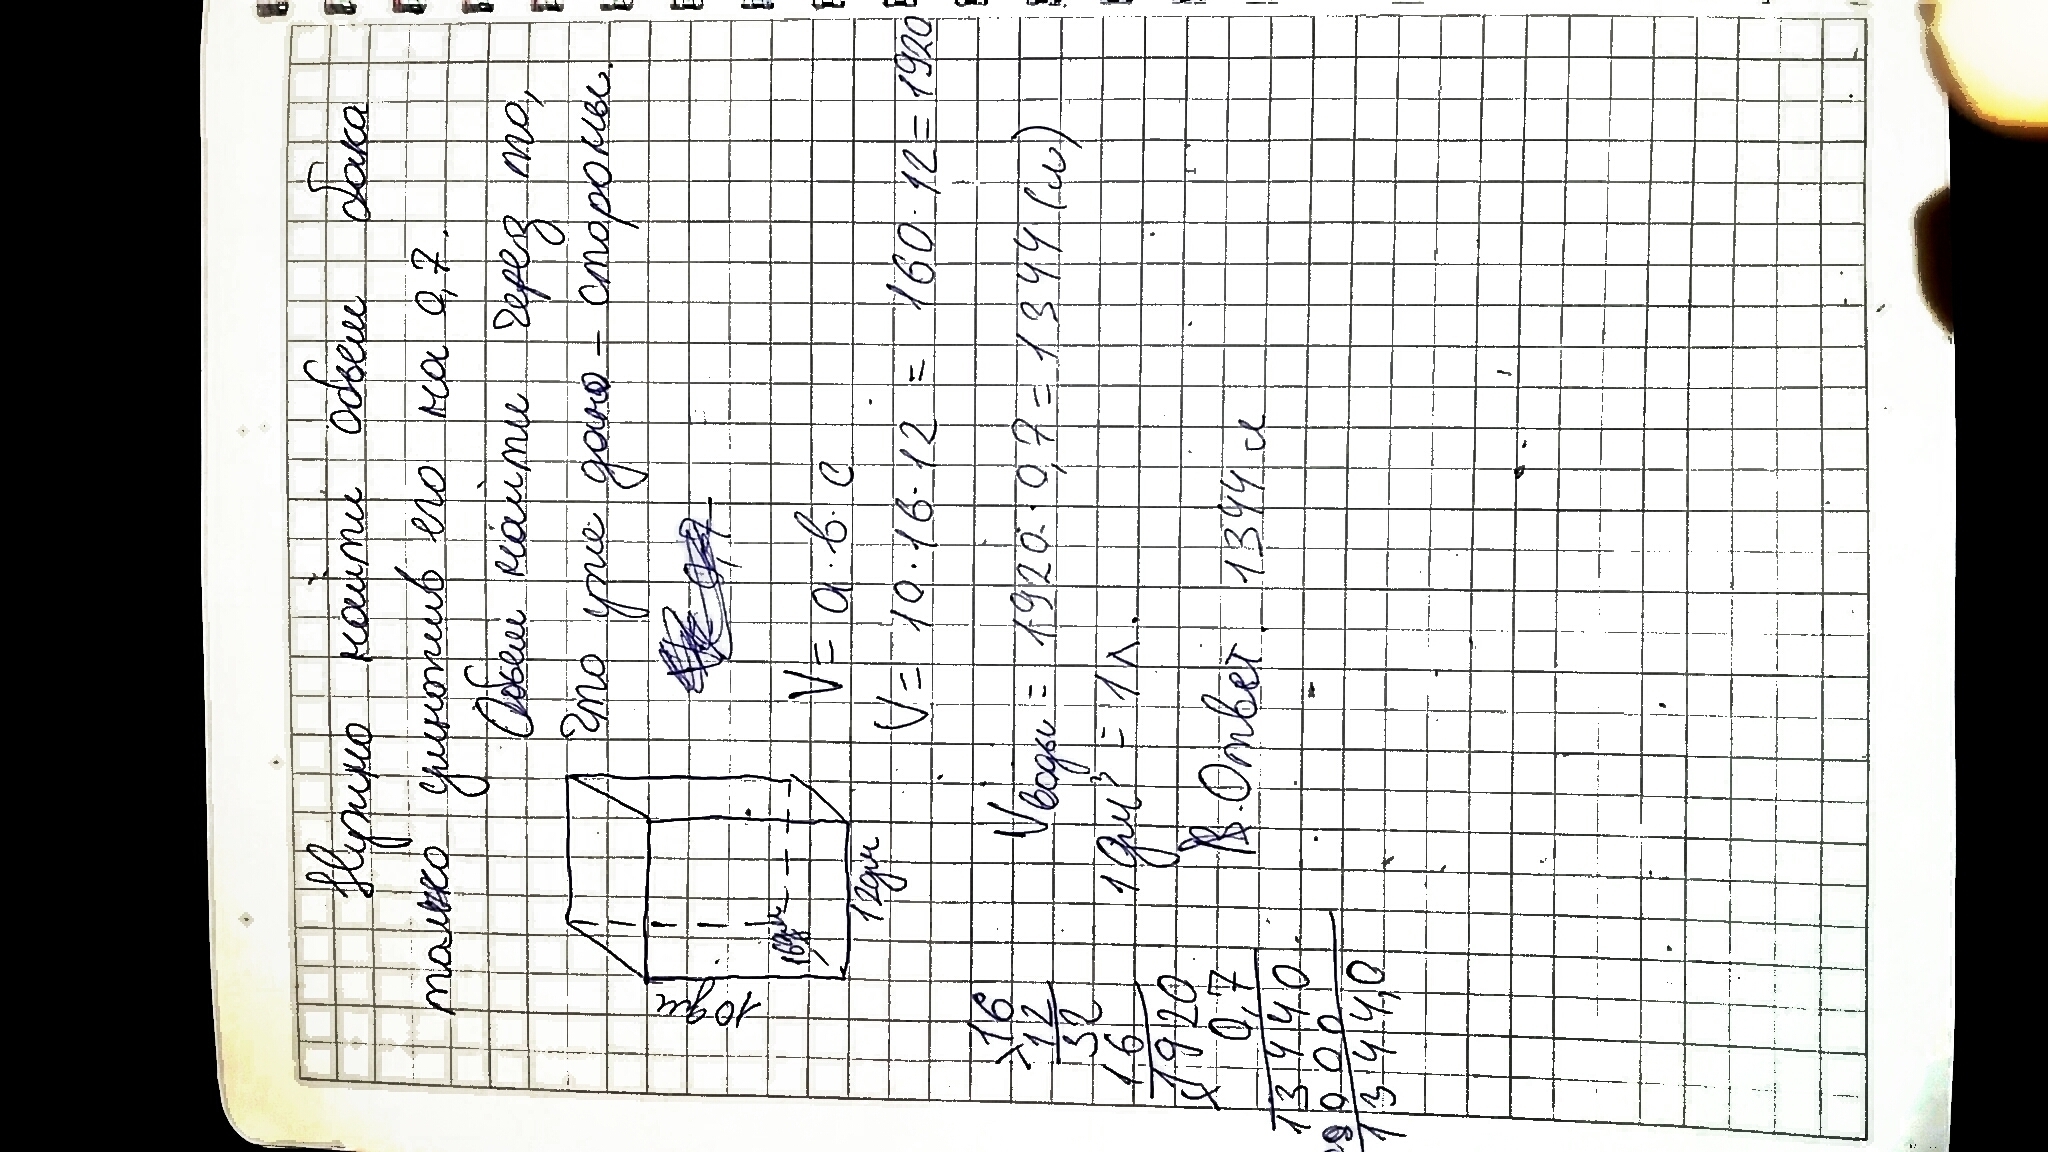 Нужно найти объем бака
только умножив его на 0,7.
Объем найти через то,
Что уже дано – стороны.
10дм
16дм
12дм
V = a·b·c
V = 10·16·12 = 160·12 = 1920
Vводы = 1920·0,7 = 1344 (л)
1дм³ = 1л.
Ответ. 1344 л
×16
12
32
16
1920
× 0,7
13440
000
1344,0